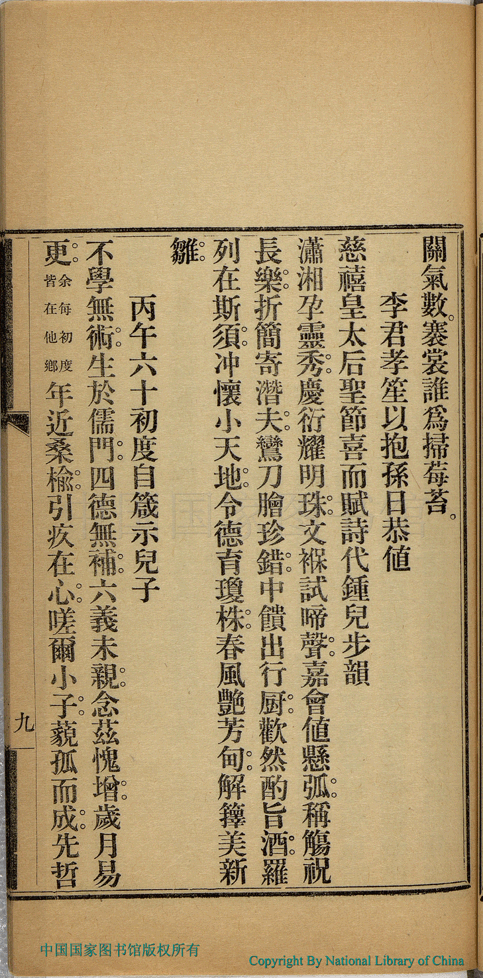 關氣數。褰裳誰爲掃莓苔。
李君孝笙以抱孫日恭値
慈禧皇太后聖節喜而賦詩代鍾兒步韻
瀟湘孕靈秀。慶衍耀明珠。文褓試啼聲。嘉會値懸弧。稱觴祝
長樂。折簡寄潛夫。鸞刀膾珍錯。中饋出行厨。歡然酌旨酒。羅
列在斯須。冲懷小天地。令德育瓊株。春風艷芳甸。解籜美新
雛。
丙午六十初度自箴示兒子
不學無術。生於儒門。四德無補。六義未親。念茲愧增。歲月易
更。余每初度皆在他鄉年近桑楡。引疚在心。嗟爾小子。藐孤而成。先哲
九
中国国家图书馆版权所有
Copyright By National Library of China